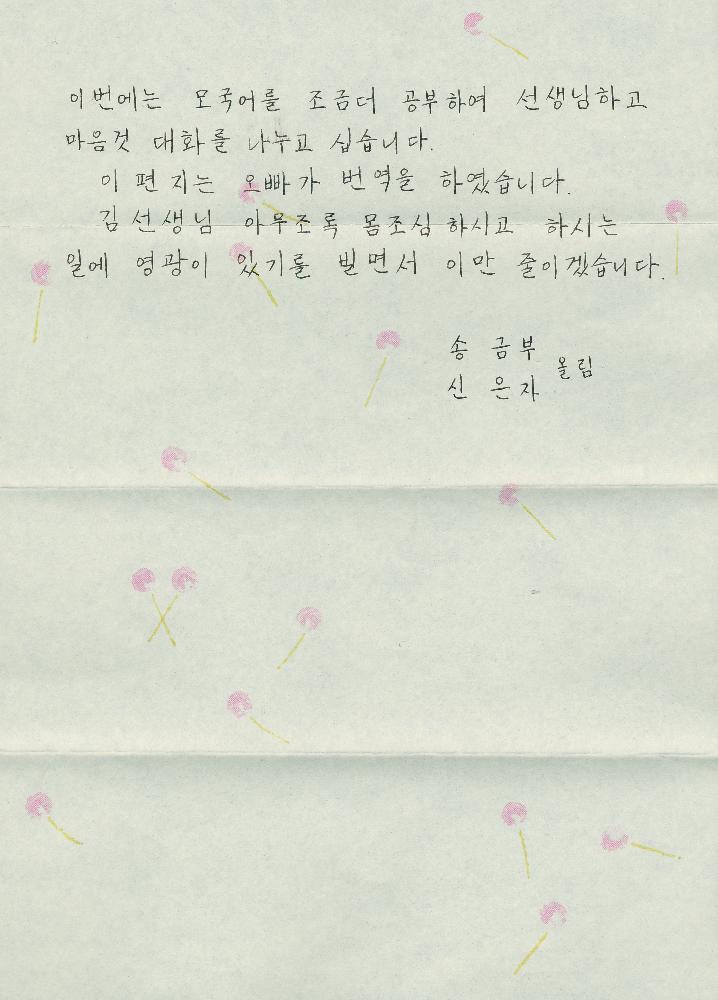 이번에는 모국어를 조금더 공부하여 선생님하고
마음것 대화를 나누고 십습니다.
이 편지는 오빠가 번역을 하였습니다.
김선생님 아무조록 몸조심 하시고 하시는
일에 영광이 있기를 빌면서 이만 줄이겠습니다.
송 금부
신 은자 올림